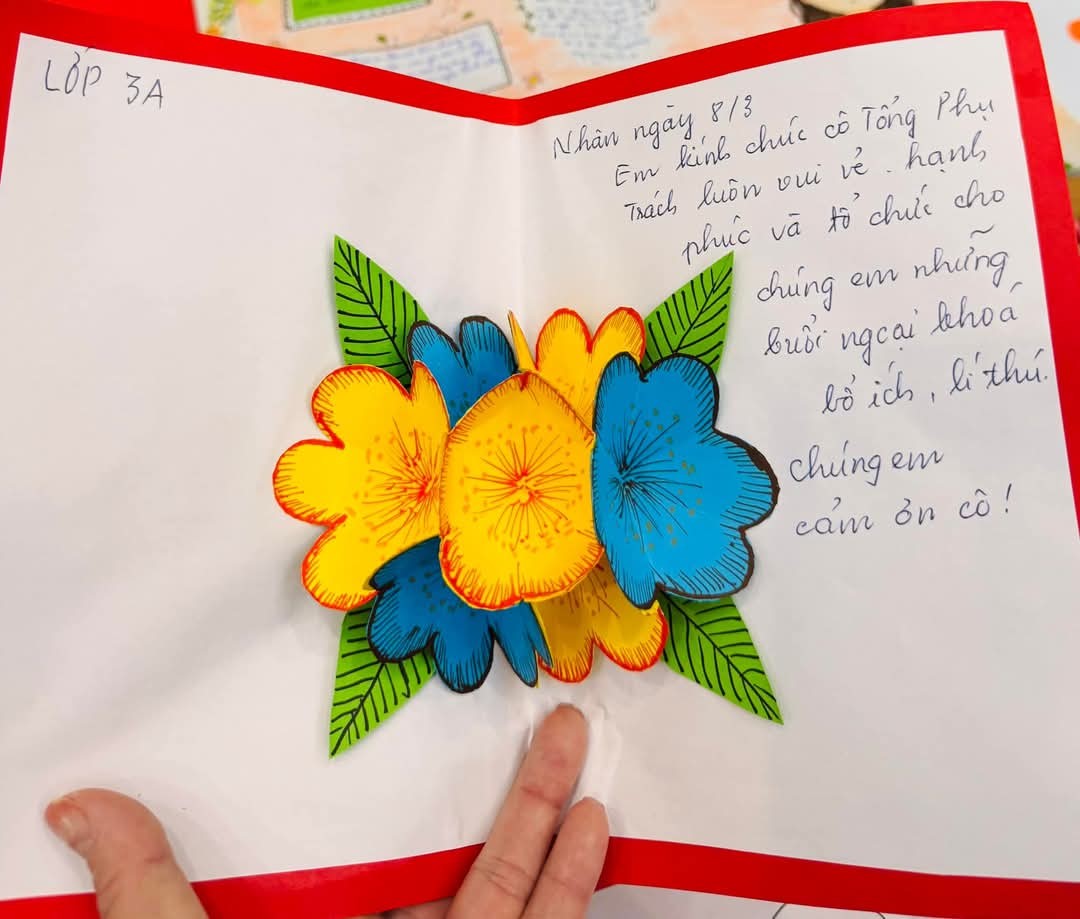 LỚP 3A
Nhân ngày 8/3
Em kính chúc cô Tổng Phụ
Trách luôn vui vẻ. hạnh
phúc và tổ chức cho
chúng em những
buổi ngoại khoá
bổ ích, lí thú.
Chúng em
cảm ơn cô!